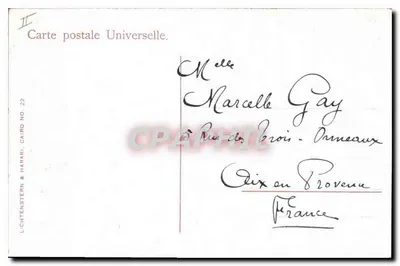 II
Carte postale Universelle.
Mlle
Marcelle Gay
Rue des Trois-Ormeaux
Aix en Provence
France
LICHTENSTERN & HARARI, CAIRO NO. 22
CPAPHIL